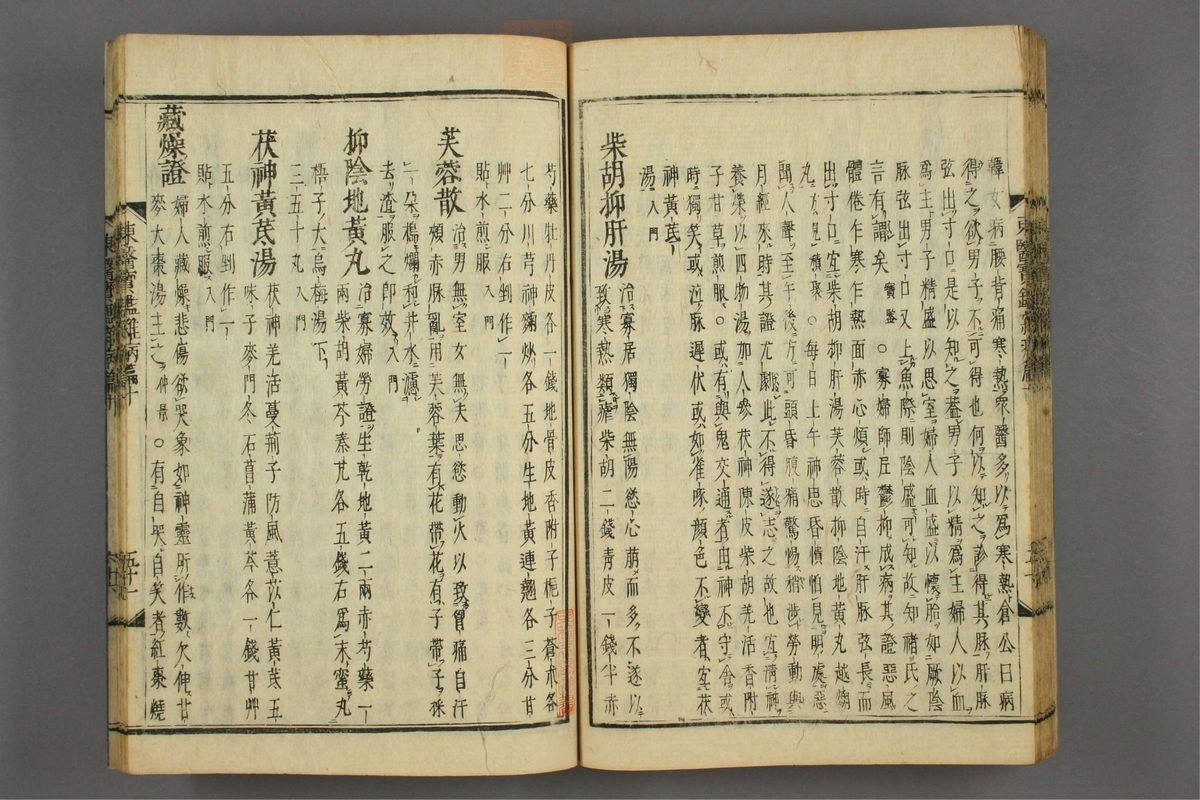 韓女病腰背痛寒熱衆醫多以爲寒熱倉公曰病
得之欲男子不可得也何以知之診得其脉肝脉
弦出寸口是以知之蓋男子以精爲主婦人以血
爲主男子精盛以思室婦人血盛以懷胎如厥陰
脉弦出寸口又上魚際則陰盛可知故知褚氏之
言有謂矣寶鑑○寡婦師尼鬱抑成病其證惡風
體倦乍寒乍熱面赤心煩或時自汗肝脉弦長而
出寸口宜柴胡抑肝湯芙蓉散抑陰地黃丸越鞠
丸方見積聚○每日上午神思昏憒怕見明處惡
聞人聲至午後方可頭昏腹痛驚惕稍涉勞動與
月經來時其證尤劇此不得遂志之故也宜淸神
養榮以四物湯加人參茯神陳皮柴胡羌活香附
子甘草煎服○或有與鬼交通者由神不守舍或
時獨笑或泣脉遲伏或如雀啄顔色不變者宜茯
神黃芪
湯入門
柴胡抑肝湯 治寡居獨陰無陽慾心萠而多不遂以
致寒熱類瘧柴胡二錢靑皮一錢半赤
芍藥牡丹皮各一錢地骨皮香附子梔子蒼朮各
七分川芎神麴炒各五分生地黃連翹各三分甘
艸二分右剉作一
貼水煎服入門
芙蓉散 治男無室女無夫思慾動火以致胷痛自汗
頰赤脉亂用芙蓉葉有花帶花有子帶子採
一朶搗爛和井水濾
去渣服之卽效入門
抑陰地黃丸 治寡婦勞證生乾地黃二兩赤芍藥一
兩柴胡黃芩秦艽各五錢右爲末蜜丸
梧子大烏梅湯下
三五十丸入門
茯神黃芪湯 茯神羌活蔓荊子防風薏苡仁黃芪五
味子麥門冬石菖蒲黃芩各一錢甘艸
五分右剉作一
貼水煎服入門
藏燥證 婦人藏燥悲傷欲哭象如神靈所作數欠伸甘
麥大棗湯主之仲景○有自哭自笑者紅棗燒
東醫寶鑑雜病篇
五十一